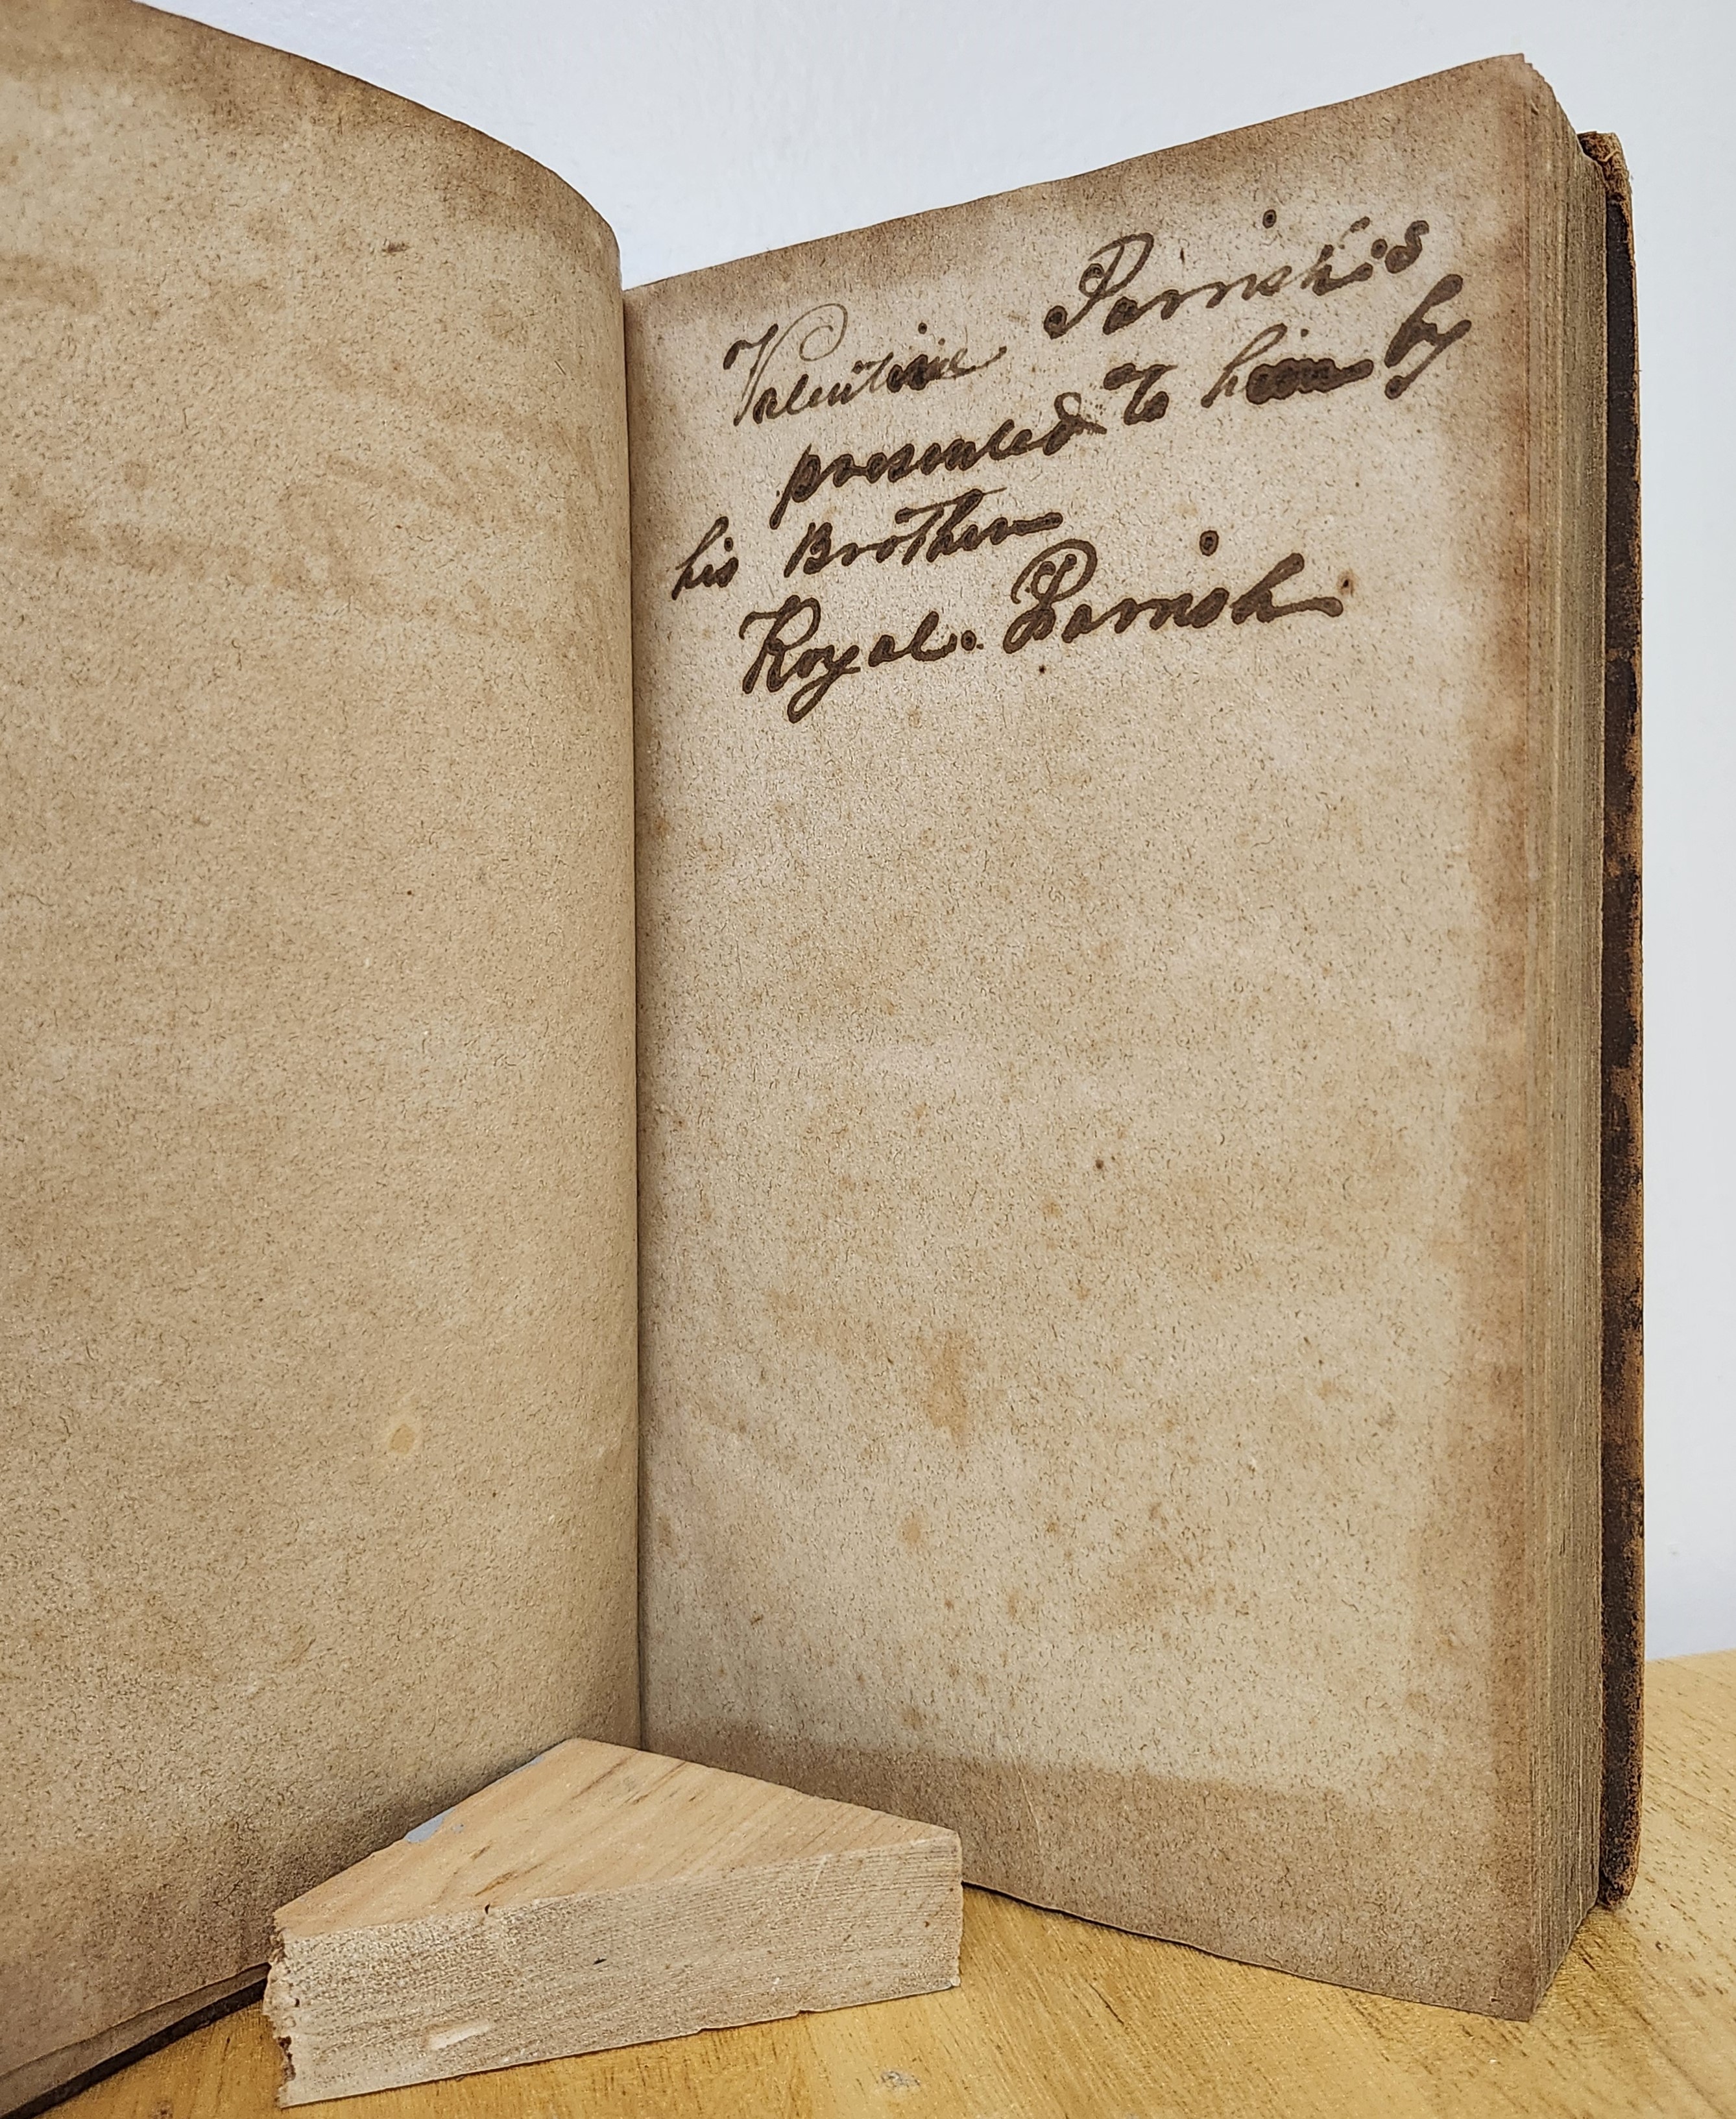 Valentine Parrish's
presented to him by
his Brother
Royal. Parrish